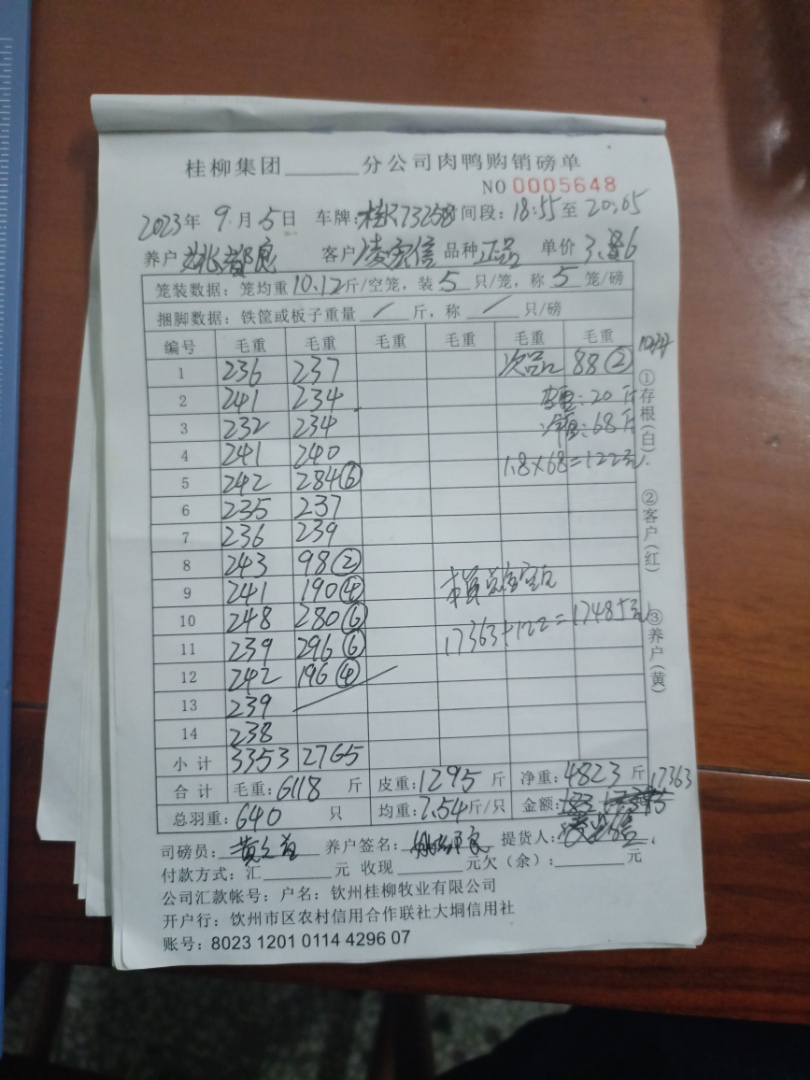 桂柳集团______分公司肉鸭购销磅单
NO 0005648
2023年 9月5日 车牌:桂K73258 时间段: 18:55至 20:05
养户 客户 品种 正品 单价 3.86
笼装数据: 笼均重 10.12斤/空笼, 装 5 只/笼, 称 5 笼/磅
捆脚数据: 铁筐或板子重量 / 斤, 称 / 只/磅
编号 毛重 毛重 毛重 毛重 毛重 毛重
1 236 237 次品 88②
2 241 234 皮重:20斤
3 232 234 净重:68斤
4 241 240 1.8×68=122元
5 242 284⑥
6 235 237
7 236 239
8 243 98②
9 241 190④
10 248 280⑥
11 239 296⑥ 17363+122=17485元
12 242 196④
13 239
14 238
小计 3353 2765
合计 毛重:6118 斤 皮重:1295 斤 净重:4823 斤 17363
总羽重:640 只 均重:7.54斤/只 金额:
司磅员: 养户签名: 提货人:
付款方式: 汇______元 收现______元欠(余):______元
公司汇款帐号: 户名: 钦州桂柳牧业有限公司
开户行: 钦州市区农村信用合作联社大垌信用社
账号: 8023 1201 0114 4296 07
①存根(白) ②客户(红) ③养户(黄)